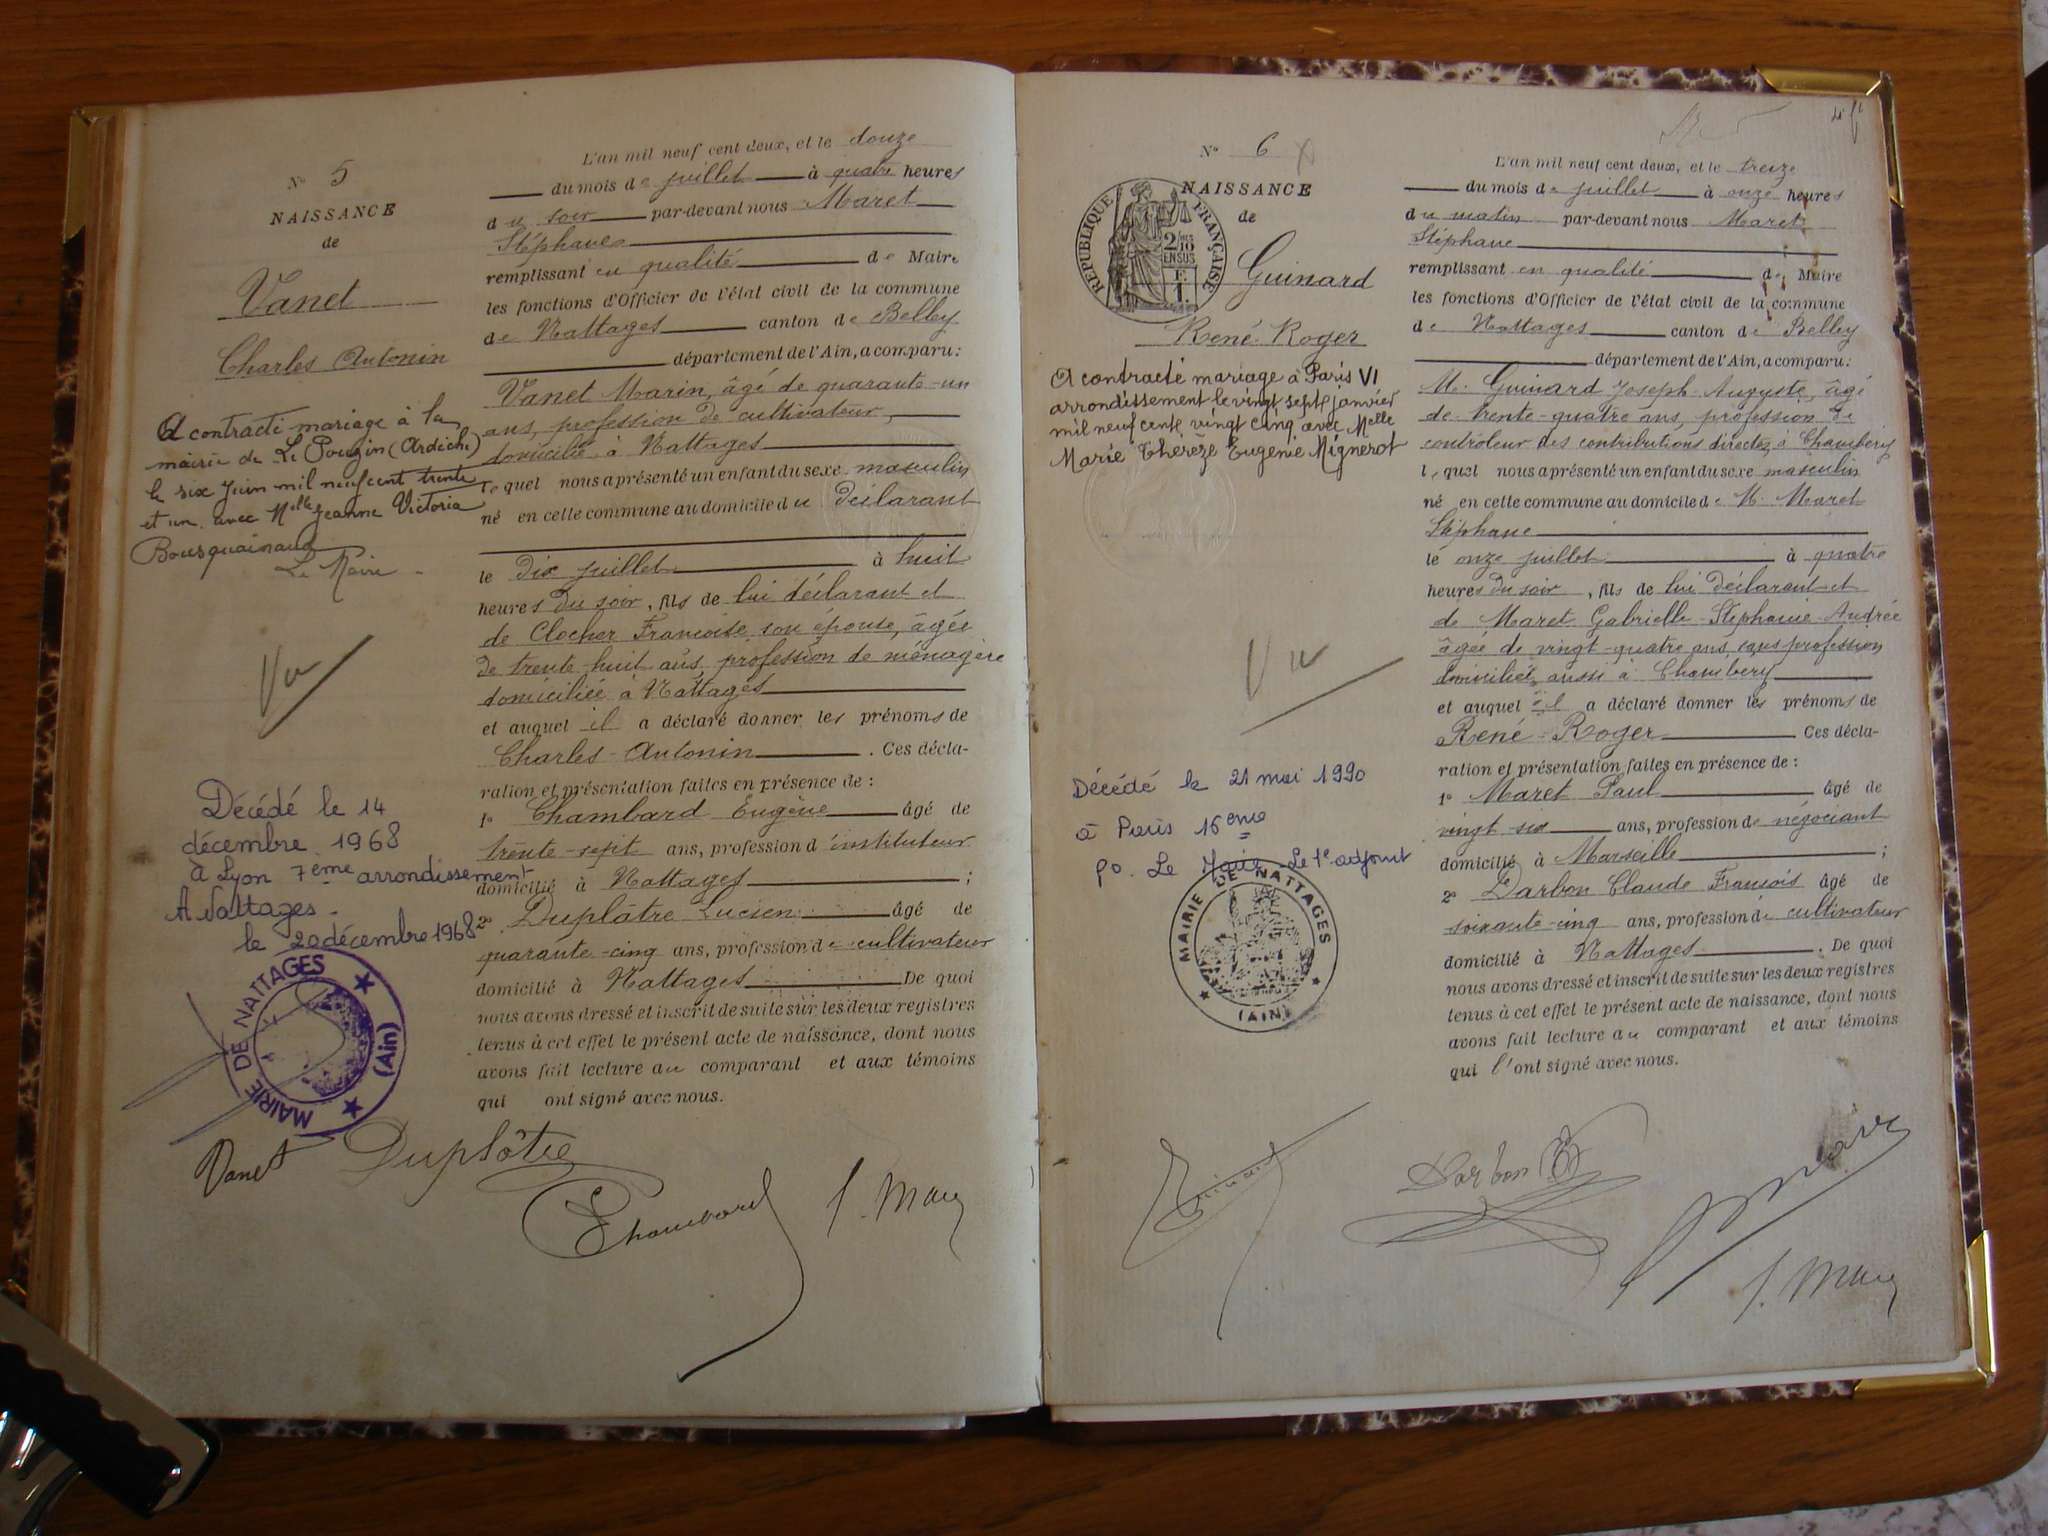 N° 5
NAISSANCE
de
Vanet
Charles Antonin
A contracté mariage à la
mairie de Le Pouzin (Ardèche)
le six Juin mil neuf cent trente
et un avec Melle Jeanne Victoria
Le Maire
Vu
Décédé le 14
décembre 1968
à Lyon 7ème arrondissement
A Nattages
le 20 décembre 1968
MAIRIE DE NATTAGES
(Ain)
L'an mil neuf cent deux, et le douze
du mois de juillet à quatre heures
du soir par-devant nous Maret
Stéphane
remplissant en qualité de Maire
les fonctions d'Officier de l'état civil de la commune
de Nattages canton de Belley
département de l'Ain, a comparu :
Vanet Marin, âgé de quarante-un
ans, profession de cultivateur,
domicilié à Nattages
lequel nous a présenté un enfant du sexe masculin
né en cette commune au domicile du déclarant
le dix juillet à huit
heures du soir, fils de lui déclarant et
de Clocher Françoise son épouse, âgée
de trente huit ans, profession de ménagère
domiciliée à Nattages
et auquel il a déclaré donner les prénoms de
Charles-Antonin . Ces décla-
ration et présentation faites en présence de :
1° Chambard Eugène âgé de
trente-sept ans, profession d'instituteur
domicilié à Nattages ;
2° Duplâtre Lucien âgé de
quarante-cinq ans, profession de cultivateur
domicilié à Nattages De quoi
nous avons dressé et inscrit de suite sur les deux registres
tenus à cet effet le présent acte de naissance, dont nous
avons fait lecture au comparant et aux témoins
qui ont signé avec nous.
Vanet Duplâtre
Chambard S. Maret
N° 6
NAISSANCE
de
RÉPUBLIQUE FRANÇAISE
2/10
EN SUS
Guinard
René-Roger
A contracté mariage à Paris VI
arrondissement le vingt sept janvier
mil neuf cent vingt cinq avec Melle
Marie Thérèze Eugénie Mignerot
Vu
Décédé le 21 mai 1990
à Paris 16ème
po. Le Maire Le 1er adjoint
MAIRIE DE NATTAGES
(AIN)
L'an mil neuf cent deux, et le treize
du mois de juillet à onze heures
du matin par-devant nous Maret
Stéphane
remplissant en qualité de Maire
les fonctions d'Officier de l'état civil de la commune
de Nattages canton de Belley
département de l'Ain, a comparu :
M. Guinard Joseph-Auguste, âgé
de trente-quatre ans, profession de
controleur des contributions directes, à Chambéry
lequel nous a présenté un enfant du sexe masculin
né en cette commune au domicile de M. Maret
Stéphane
le onze juillet à quatre
heures du soir, fils de lui déclarant et
de Maret Gabrielle-Stéphanie-Andrée
âgée de vingt-quatre ans, sans profession
domiciliée aussi à Chambéry
et auquel il a déclaré donner les prénoms de
René-Roger Ces décla-
ration et présentation faites en présence de :
1° Maret Paul âgé de
vingt-six ans, profession de négociant
domicilié à Marseille ;
2° Darbon Claude François âgé de
soixante-cinq ans, profession de cultivateur
domicilié à Nattages . De quoi
nous avons dressé et inscrit de suite sur les deux registres
tenus à cet effet le présent acte de naissance, dont nous
avons fait lecture au comparant et aux témoins
qui l'ont signé avec nous.
Guinard Darbon
S. Maret